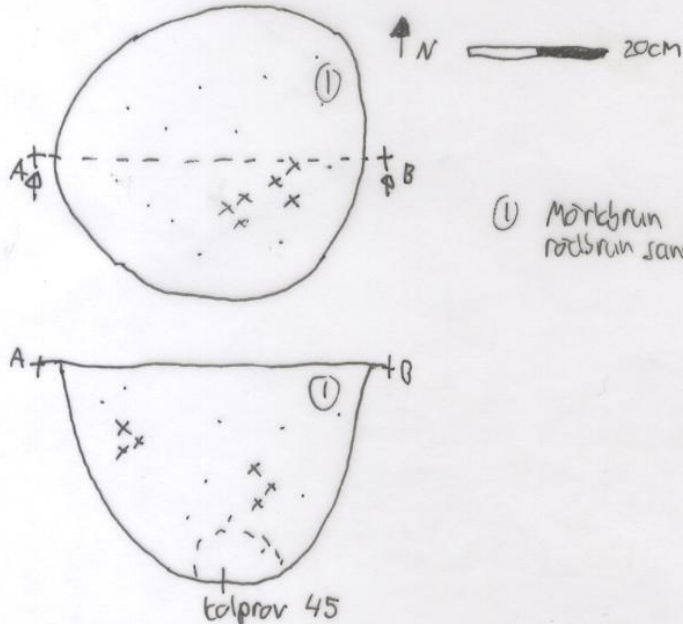 N 20cm
①
A B
① Mörkbrun
rödbrun san
A B
①
kolprov 45